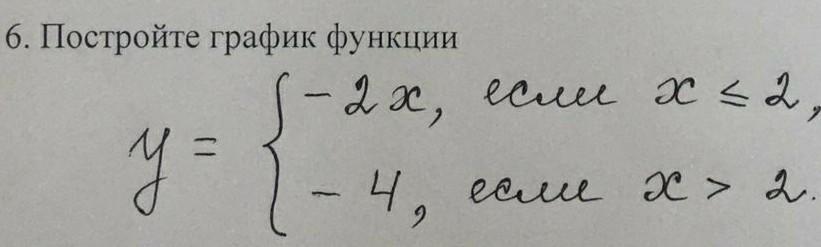 6. Постройте график функции
y = { -2x, если x ≤ 2,
-4, если x > 2.